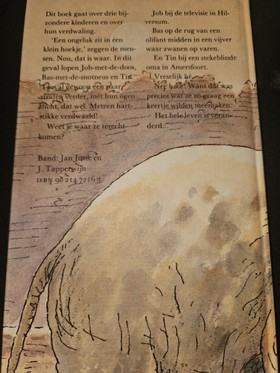 Dit boek gaat over drie bij-
zondere kinderen en over
hun verdwaling.
'Een ongeluk zit in een
klein hoekje,' zeggen de men-
sen. Nou, dat is waar. In dit
geval lopen Job-met-de-doos,
Bas-met-de-motneus en Tin
een paar
straten verder, met hun ogen
dicht, dat wel. Meteen hart-
stikke verdwaald!
Weet je waar ze terecht
komen?
Band: Jan Jutte en
J. Tapperwijn
ISBN 90 214
Job bij de televisie in Hil-
versum.
Bas op de rug van een
olifant midden in een vijver
waar zwanen op varen.
En Tin bij een stekeblinde
oma in Amersfoort.
Vreselijk
Want dit was
precies wat ze zo graag een
keertje wilden meemaken.
Het hele leven is veran-
derd.